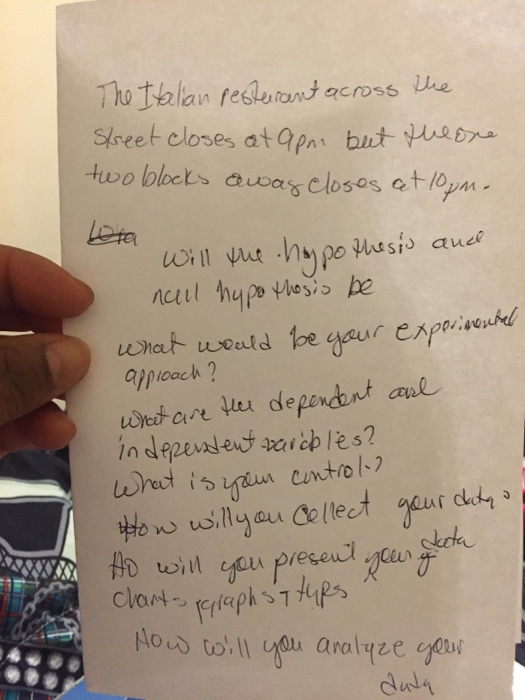 The Italian resturant across the
street closes at 9pm but the one
two blocks away closes at 10pm.
Will the hypothesis and
null hypothesis be
What would be your experimental
approach?
What are the dependent and
independent variables?
What is your control?
How will you collect your data?
Ho will you present your data
charts graphs types
How will you analyze your
data